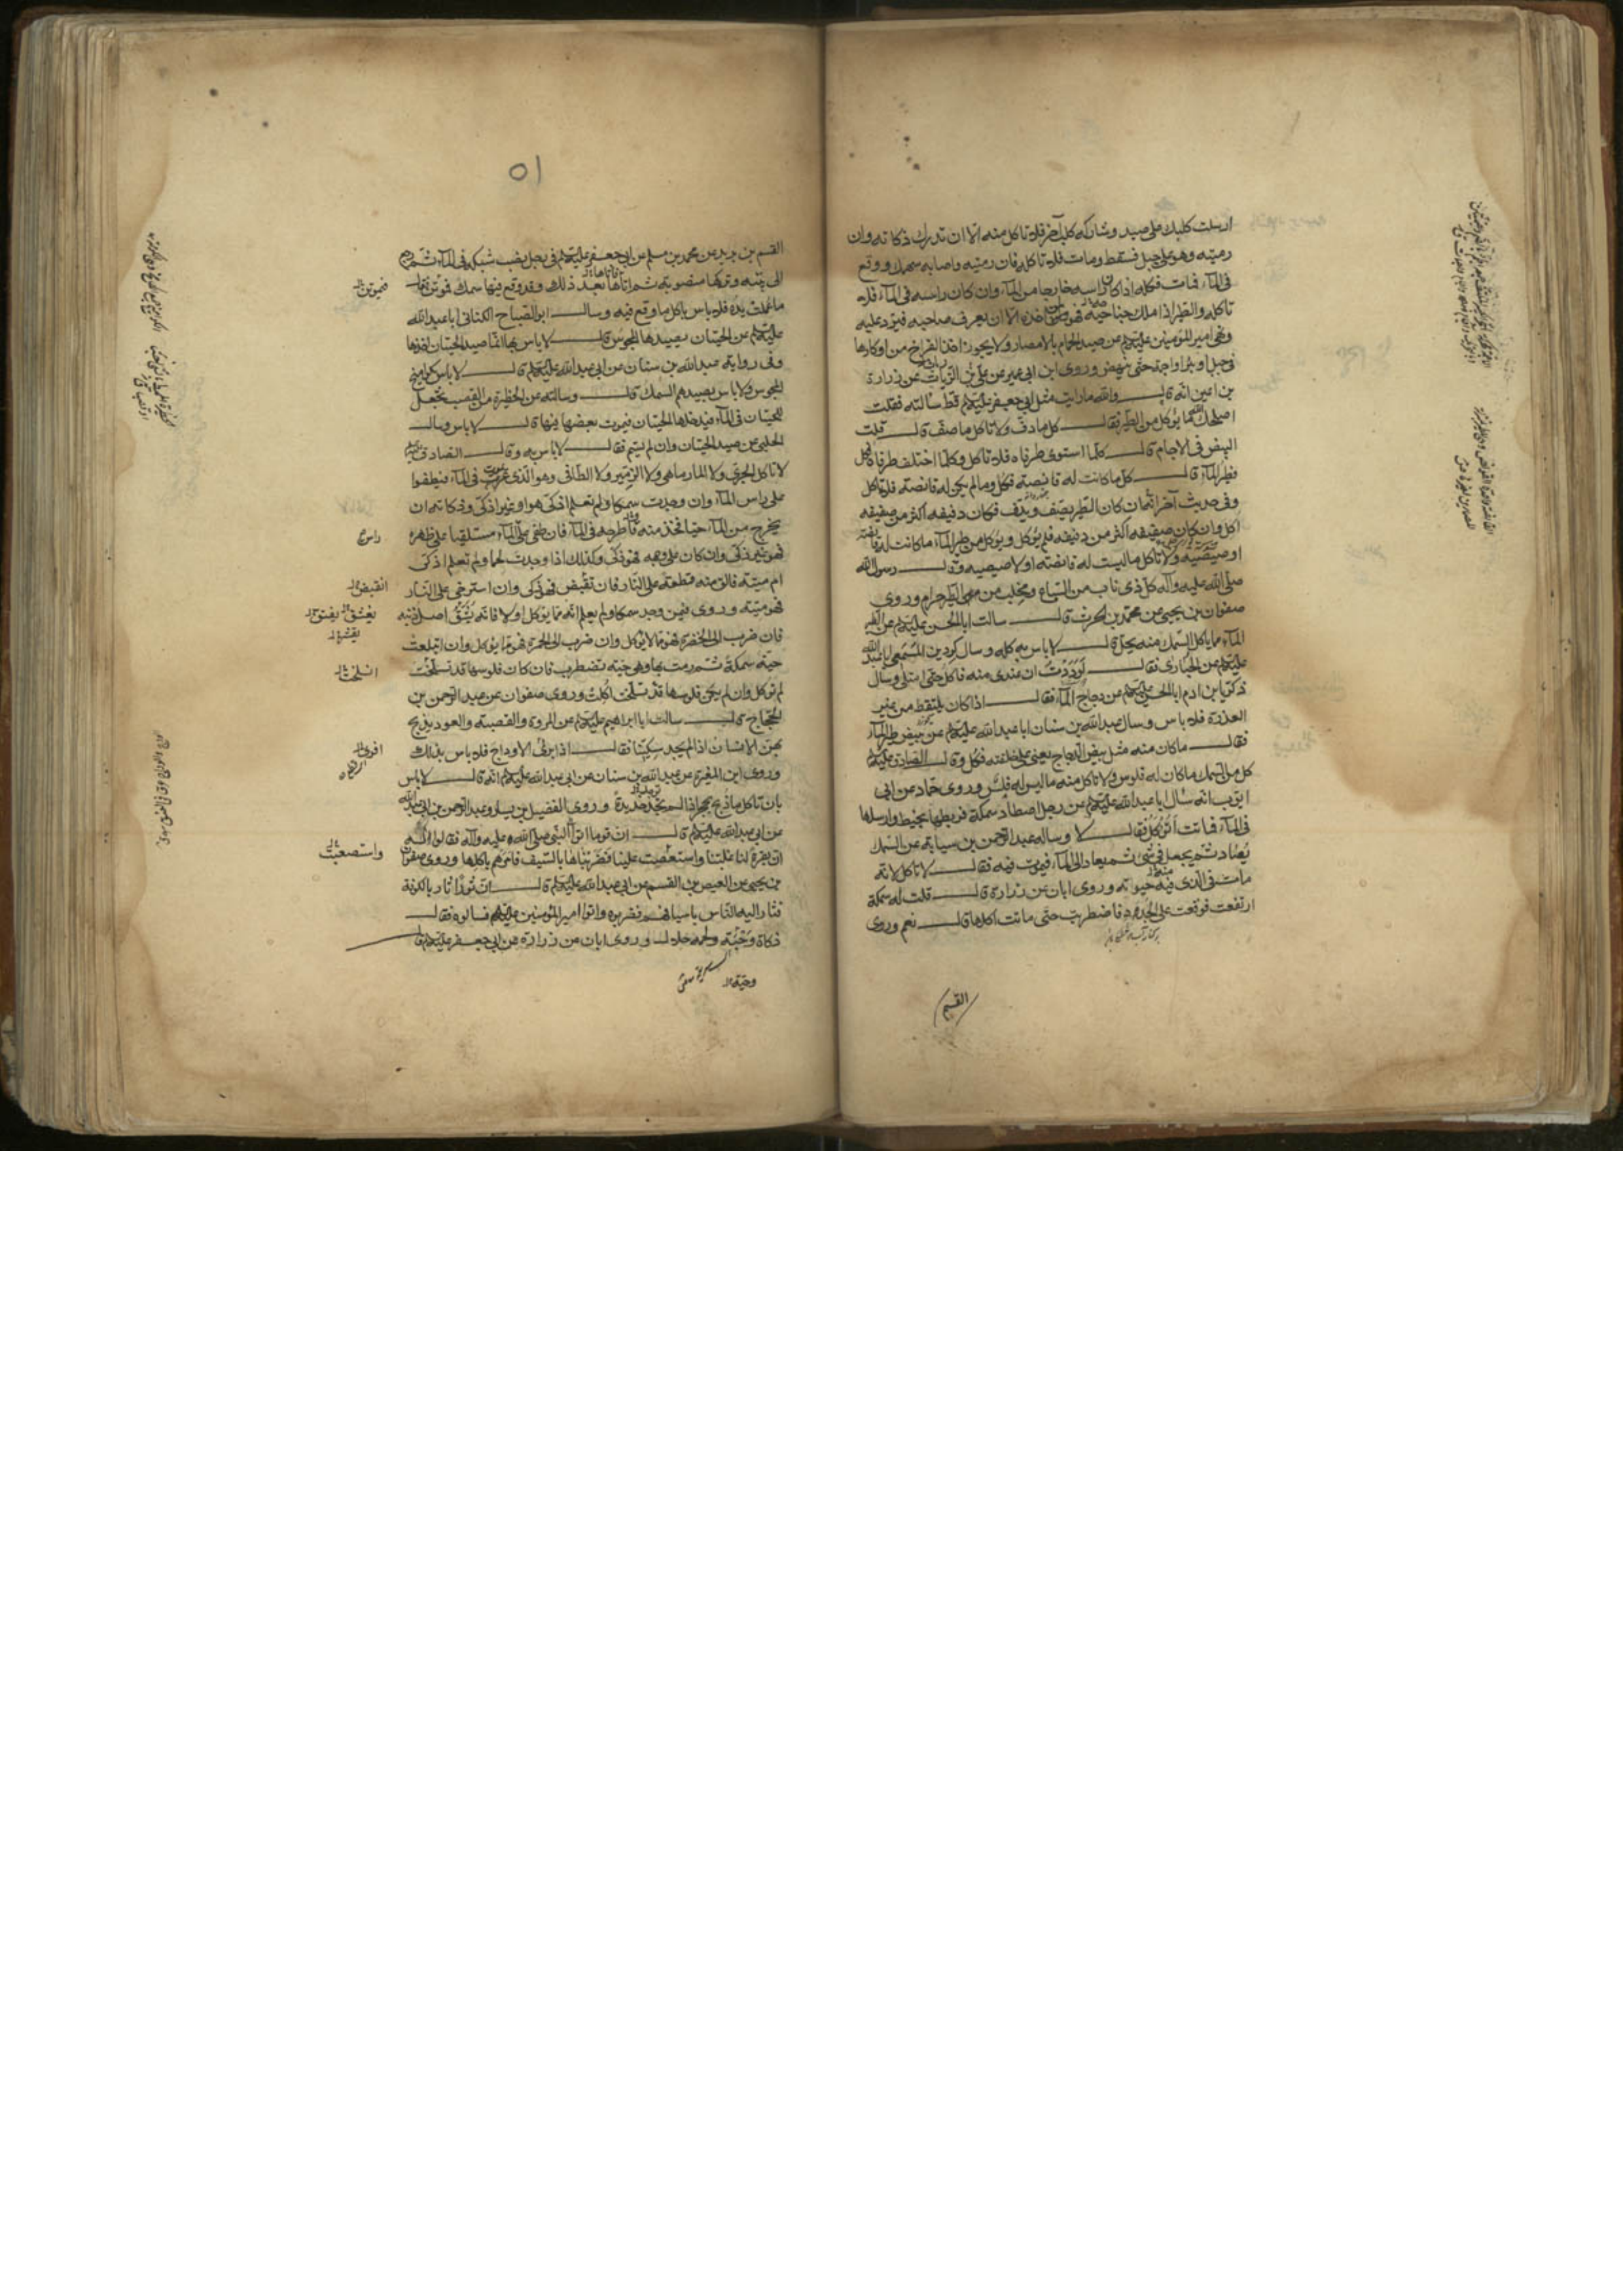 ارسلت كلبك على صيد وشاركه كلب آخر فلا تاكل منه الا ان تدرك ذكاته وان
رميته وهو على جبل فسقط ومات فلا تاكله فان رميته واصابه سهمك ووقع
فى الماء فمات فكله اذا كان راسه خارجا من الماء وان كان راسه فى الماء فلا
تاكله والطير اذا ملك جناحيه فهو لمن اخذه الا ان يعرف صاحبه فيرد عليه
ونهى امير المؤمنين عليه السلام عن صيد الحمام بالامصار ولا يجوز اخذ الفراخ من اوكارها
فى جبل او بئر او اجمة حتى ينهض وروى ابن ابى عمير عن على بن الزيات عن زرارة
بن اعين انه قال والله ما رايت مثل ابى جعفر عليه السلام قط سالته فقلت
اصلحك الله ما يؤكل من الطير فقال كل ما دف ولا تاكل ما صف قال قلت
البيض فى الاجام قال كلما استوى طرفاه فلا تاكل وكلما اختلف طرفاه فكل
فطير الماء قال كل ما كانت له قانصة فكل وما لم يكن له قانصة فلا تاكل
وفى حديث آخر انه ان كان الطير يصف ويدف فكان دفيفه اكثر من صفيفه
اكل وان كان صفيفه اكثر من دفيفه فلم يؤكل ويؤكل من طير الماء ما كانت له قانصة
او صيصية ولا تاكل ما ليست له قانصة او لا صيصية وقال رسول الله
صلى الله عليه وآله كل ذى ناب من السباع ومخلب من الطير حرام وروى
صفوان بن يحيى عن محمد بن الحرث قال سالت ابا الحسن عليه السلام عن طير
الماء مما ياكل السمك منه يحل قال لا باس به كله وسال كردين المسمعى ابا عبد الله
عليه السلام عن الحبارى فقال لوددت ان عندى منه فاكل حتى امتلى وسال
زكريا بن ادم ابا الحسن عليه السلام عن دجاج الماء فقال اذا كان يلتقط من غير
العذرة فلا باس وسال عبد الله بن سنان ابا عبد الله عليه السلام عن بيض طير الماء
فقال ما كان منه مثل بيض الدجاج يعنى على خلقته فكل وقال الصادق عليه السلام
كل من السمك ما كان له فلوس ولا تاكل منه ما ليس له فلس وروى حماد عن ابى
ايوب انه سال ابا عبد الله عليه السلام عن رجل اصطاد سمكة فربطها بخيط وارسلها
فى الماء فماتت اتؤكل فقال لا وساله عبد الرحمن بن سيابة عن السمك
يصاد ثم يجعل فى شئ ثم يعاد الى الماء فيموت فيه فقال لا تاكل لانه
مات فى الذى فيه حيوته وروى ابان عن زرارة قال قلت له سمكة
ارتفعت فوقعت على الجدد فاضطربت حتى ماتت اكلها قال نعم وروى
القسم
٥١
القسم بن بريد عن محمد بن مسلم عن ابى جعفر عليه السلام فى رجل نصب شبكة فى الماء ثم رجع
الى بيته وتركها منصوبة ثم اتاها بعد ذلك وقد وقع فيها سمك فموتن فقال
ما عملت يده فلا باس باكل ما وقع فيه وسال ابو الصباح الكنانى ابا عبد الله
عليه السلام عن الحيتان يصيدها المجوس قال لا باس بها انما صيد الحيتان اخذها
وفى رواية عبد الله بن سنان عن ابى عبد الله عليه السلام قال لا باس كواميخ
المجوس ولا باس بصيدهم السمك قال وسالته عن الحظيرة من القصب يجعل
للحيتان فى الماء فيدخلها الحيتان فيموت بعضها فيها قال لا باس وسال
الحلبى عن صيد الحيتان وان لم يسم فقال لا باس به وقال الصادق
لا تاكل الجرى ولا المارماهى ولا الزمير ولا الطافى وهو الذى يموت فى الماء فيطفوا
على راس الماء وان وجدت سمكا ولم تعلم اذكى هو او غير اذكى وذكاته ان
يخرج من الماء حيا فخذ منه فاطرحه فى الماء فان طفى على الماء مستلقيا على ظهره
فهو غير ذكى وان كان على وجهه فهو ذكى وكذلك اذا وجدت لحما ولم تعلم اذكى
ام ميتة فالق منه قطعة على النار فان تقبض فهو ذكى وان استرخى على النار
فهو ميتة وروى فيمن وجد سمكا ولم يعلم انه مما يؤكل او لا فانه يشق اصل ذنبه
فان ضرب الى الخضرة فهو مما لا يؤكل وان ضرب الى الحمرة فهو مما يؤكل وان ابتلعت
حية سمكة ثم رمت بها وهى حية تضطرب فان كان فلوسها قد تسلخت
لم تؤكل وان لم يكن فلوسها قد تسلخت اكلت وروى صفوان عن عبد الرحمن بن
الحجاج قال سالت ابا ابراهيم عليه السلام عن المروة والقصبة والعود يذبح
بهن الانسان اذا لم يجد سكينا فقال اذا برئ الاوداج فلا باس بذلك
وروى ابن المغيرة عن عبد الله بن سنان عن ابى عبد الله عليه السلام انه قال لا باس
بان تاكل ما ذبح بحجر اذا لم تجد حديدة وروى الفضيل بن يسار وعبد الرحمن بن ابى عبد الله
عن ابى عبد الله عليه السلام قال ان قوما اتوا النبى صلى الله عليه وآله فقالوا له
ان بقرة لنا غلبتنا واستعصت علينا فضربناها بالسيف فامرهم باكلها وروى صفوان
بن يحيى عن العيص بن القسم عن ابى عبد الله عليه السلام قال ان ثورا ثار بالكوفة
فثار اليه الناس باسيافهم فضربوه واتوا امير المؤمنين عليه السلام فسالوه فقال
ذكاة وحية ولحمه حلال وروى ابان عن زرارة عن ابى جعفر عليه السلام قال
واستصعبت